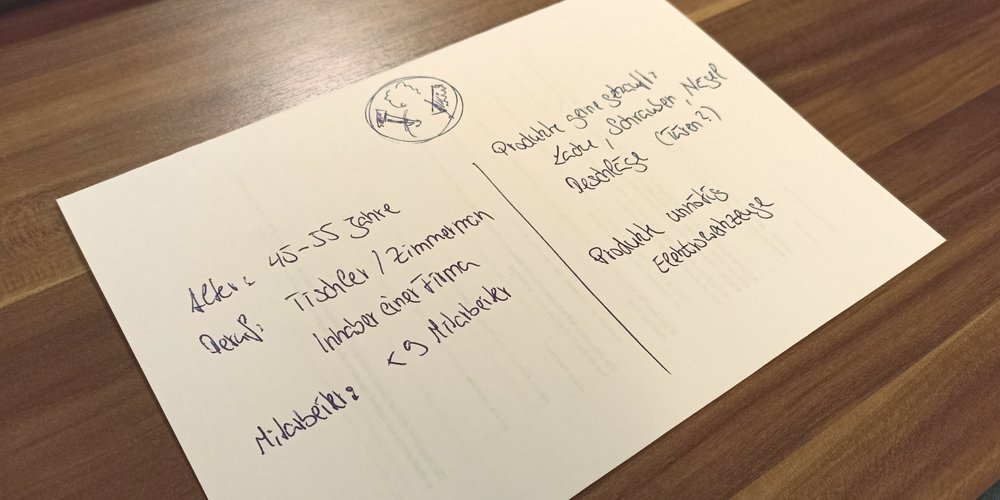 Alter: 45-55 Jahre
Beruf: Tischler / Zimmerman
Inhaber einer Firma
Mitarbeiter: < 9 Mitarbeiter
Produkte gerne gekauft:
Lacke, Schrauben, Nägel
Beschläge (Türen?)
Produkte unnötig
Elektrowerkzeuge